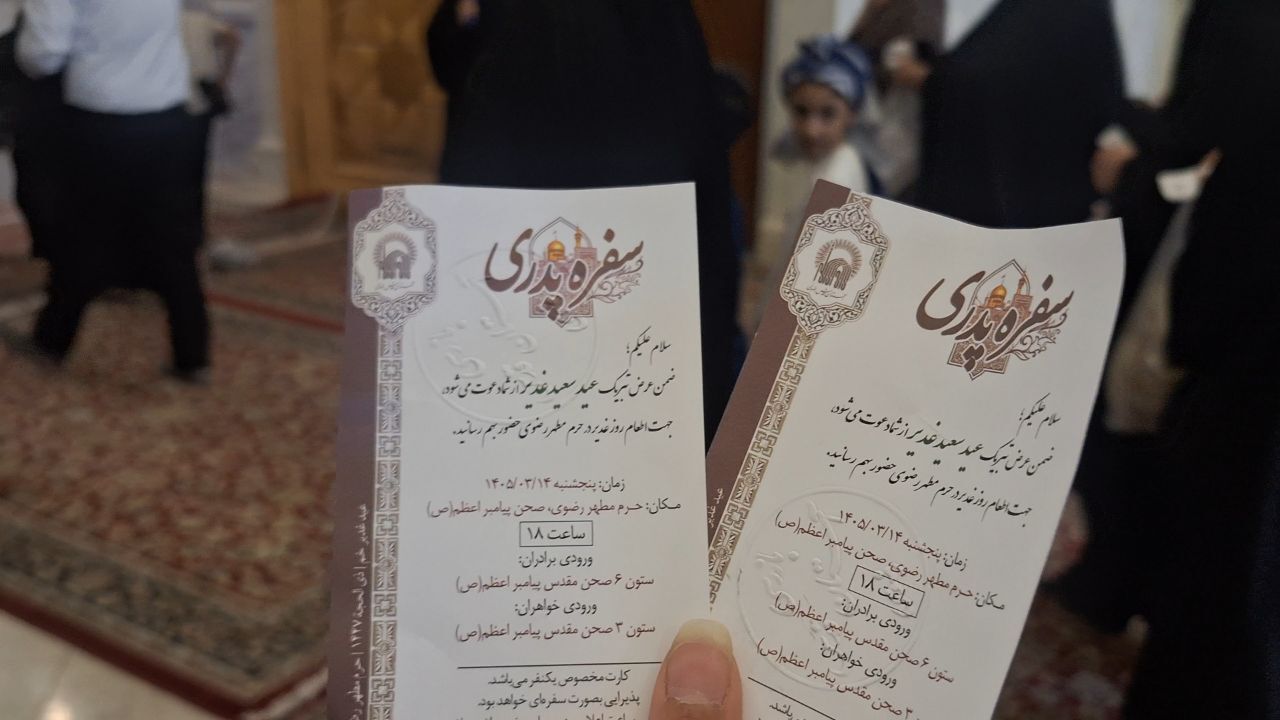 سفره پدری
سلام علیکم؛
ضمن عرض تبریک عید سعید غدیر از شما دعوت می‌شود،
جهت اطعام روز غدیر در حرم مطهر رضوی حضور بهم رسانید.
زمان: پنجشنبه ۱۴۰۵/۰۳/۱۴
مکان: حرم مطهر رضوی، صحن پیامبر اعظم(ص)
ساعت ۱۸
ورودی برادران:
ستون ۶ صحن مقدس پیامبر اعظم(ص)
ورودی خواهران:
ستون ۳ صحن مقدس پیامبر اعظم(ص)
کارت مخصوص یکنفر می‌باشد.
پذیرایی بصورت سفره‌ای خواهد بود.
عید غدیر خم | ذی الحجة ۱۴۴۷ | حرم مطهر
سفره پدری
سلام علیکم؛
ضمن عرض تبریک عید سعید غدیر از شما دعوت می‌شود،
جهت اطعام روز غدیر در حرم مطهر رضوی حضور بهم رسانید.
زمان: پنجشنبه ۱۴۰۵/۰۳/۱۴
مکان: حرم مطهر رضوی، صحن پیامبر اعظم(ص)
ساعت ۱۸
ورودی برادران:
ستون ۶ صحن مقدس پیامبر اعظم(ص)
ورودی خواهران:
۳ صحن مقدس پیامبر اعظم(ص)
عید غدیر